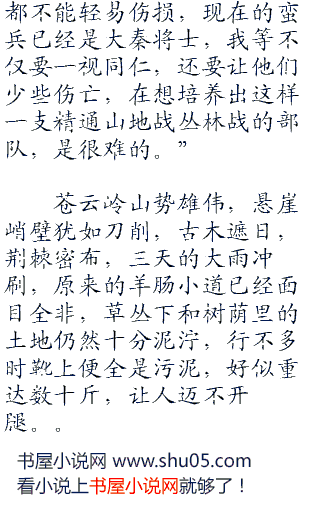 都不能轻易伤损，现在的蛮
兵已经是大秦将士，我等不
仅要一视同仁，还要让他们
少些伤亡，在想培养出这样
一支精通山地战丛林战的部
队，是很难的。”
苍云岭山势雄伟，悬崖
峭壁犹如刀削，古木遮日，
荆棘密布，三天的大雨冲
刷，原来的羊肠小道已经面
目全非，草丛下和树荫里的
土地仍然十分泥泞，行不多
时靴上便全是污泥，好似重
达数十斤，让人迈不开
腿。。
书屋小说网 www.shu05.com
看小说上书屋小说网就够了！